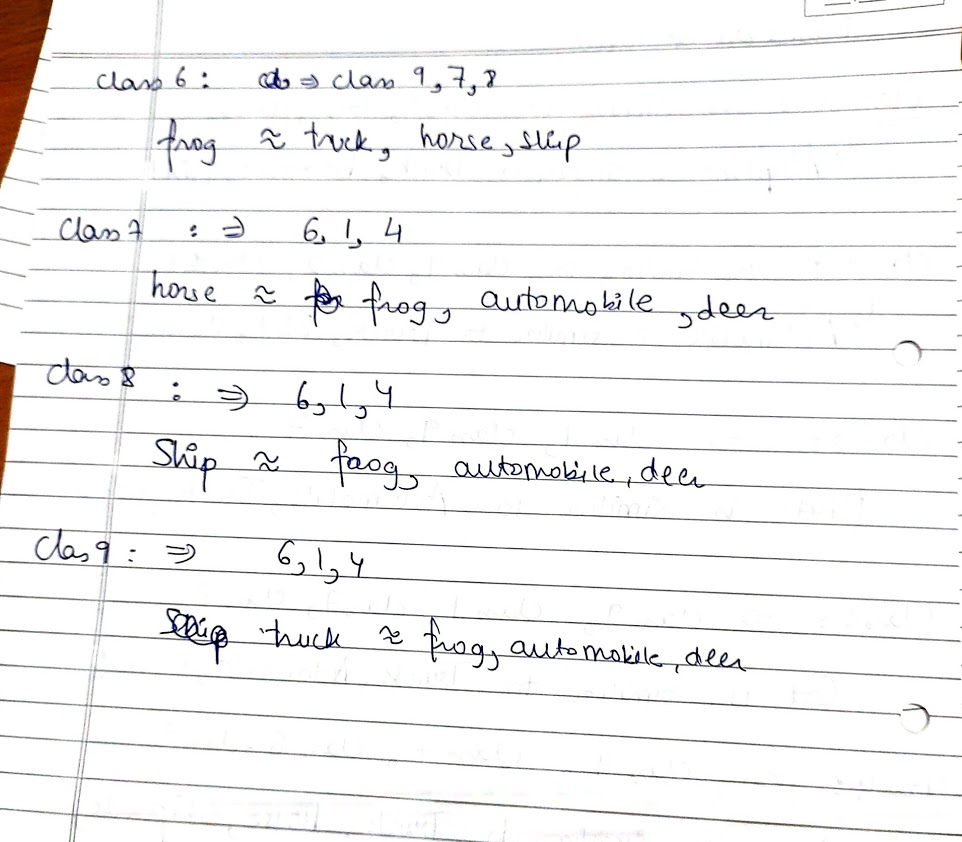 class 6 : ⇒ class 9, 7, 8
frog ≈ truck, horse, ship
Class 7 : ⇒ 6, 1, 4
horse ≈ frog, automobile, deer
Class 8 : ⇒ 6, 1, 4
Ship ≈ frog, automobile, deer
Clas 9 : ⇒ 6, 1, 4
truck ≈ frog, automobile, deer